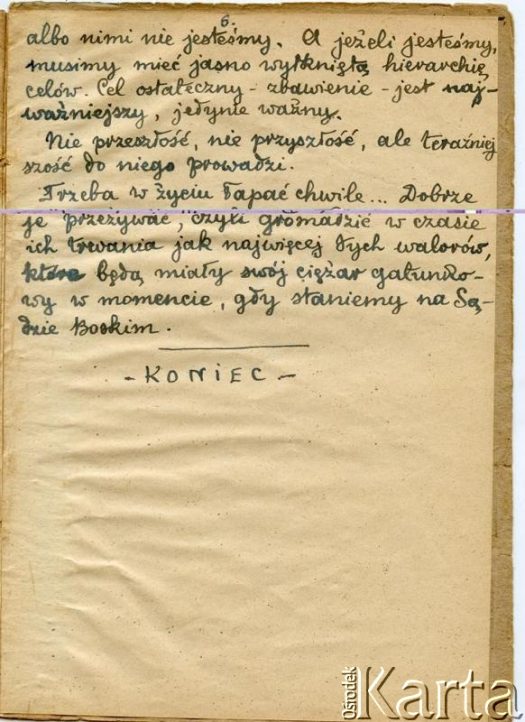 6.
albo nimi nie jesteśmy. A jeżeli jesteśmy,
musimy mieć jasno wytkniętą hierarchię
celów. Cel ostateczny - zbawienie - jest naj-
ważniejszy, jedynie ważny.
Nie przeszłość, nie przyszłość, ale teraźniej
szość do niego prowadzi.
Trzeba w życiu łapać chwile... Dobrze
je przeżywać, czyli gromadzić w czasie
ich trwania jak najwięcej tych walorów,
które będą miały swój ciężar gatunko-
wy w momencie, gdy staniemy na Są-
dzie Boskim.
- KONIEC -
Ośrodek
Karta